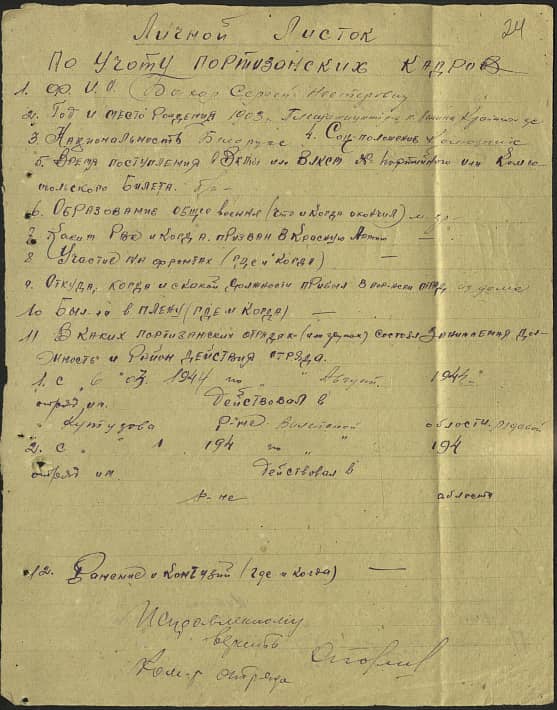 24
Личной Листок
По Учоту портизонских кадров
1. Ф.И.О. Сергей Нестерович
2. Год и место рождения 1903г.
3. Национальность Белорус 4. Соц-положение
5. Время поступления в или ВЛКСМ № партийного или Комсо-
мольского Билета. б/п -
6. Образование общее военна (что и когда окончил)
7. Каким РВК и когда призван в Красную Армию —
8. Участие на фронтах (где и когда) —
9. Откуда, когда и с какой должности прибыл в отряд из дома
10 Был ли в плену (где и когда) —
11 В каких портизанских отрядах (или группах) состоял занимаемая дол-
жность и район действия отряда.
1. с " 6 " 03 1944 по " " Август 1944 "
отряд им. Действовал в
" Кутузова р-не области. Рядовой
2. с " " 194 по " " 194
отряд им. Действовал в
р-не области
12. Ранение и контузий (где и когда) —
Исправленному
верить
Ком-р отряда